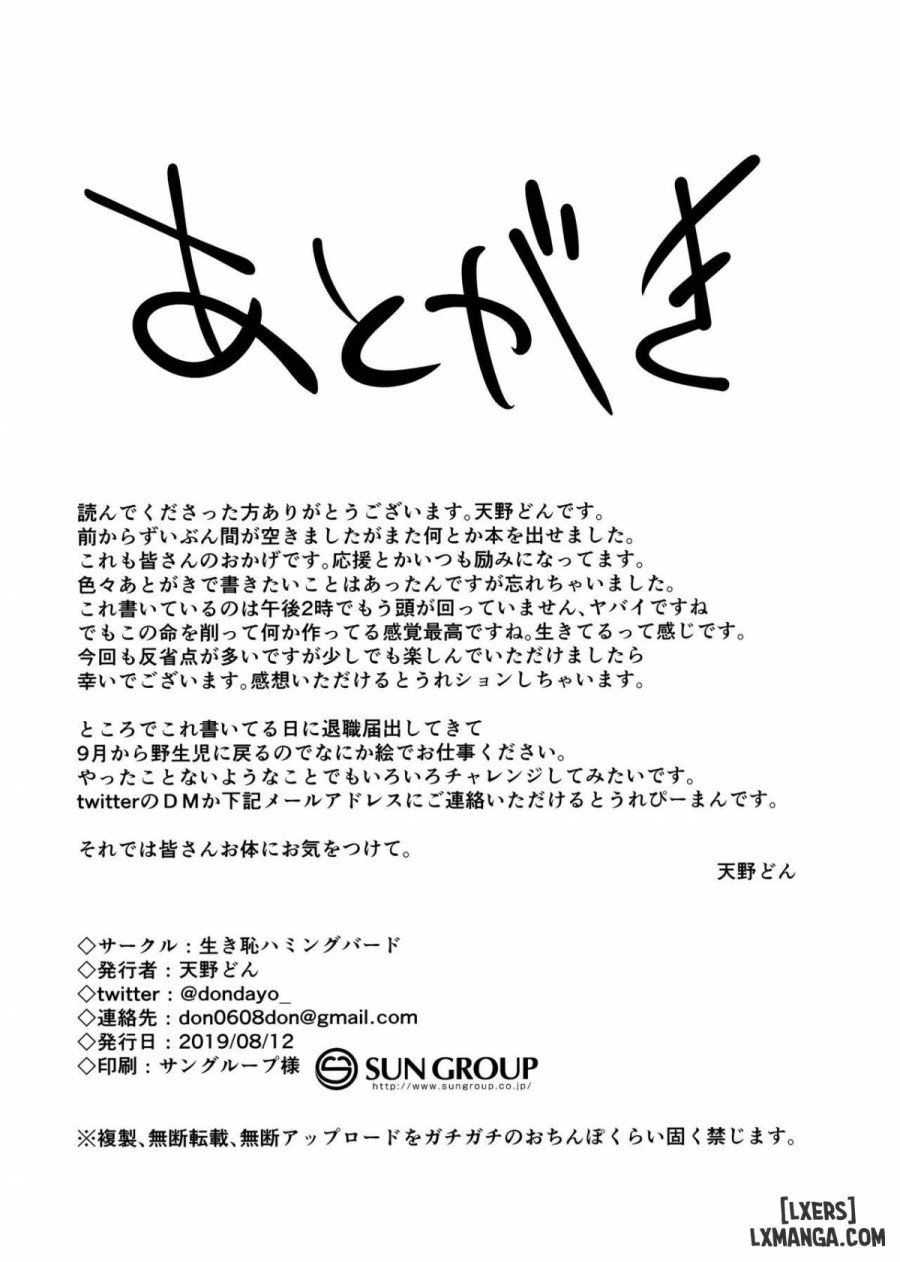 あとがき
読んでくださった方ありがとうございます。天野どんです。
前からずいぶん間が空きましたがまた何とか本を出せました。
これも皆さんのおかげです。応援とかいつも励みになってます。
色々あとがきで書きたいことはあったんですが忘れちゃいました。
これ書いているのは午後2時でもう頭が回っていません、ヤバイですね
でもこの命を削って何か作ってる感覚最高ですね。生きてるって感じです。
今回も反省点が多いですが少しでも楽しんでいただけましたら
幸いでございます。感想いただけるとうれションしちゃいます。
ところでこれ書いてる日に退職届出してきて
9月から野生児に戻るのでなにか絵でお仕事ください。
やったことないようなことでもいろいろチャレンジしてみたいです。
twitterのDMか下記メールアドレスにご連絡いただけるとうれぴーまんです。
それでは皆さんお体にお気をつけて。
天野どん
◇サークル：生き恥ハミングバード
◇発行者：天野どん
◇twitter：@dondayo_
◇連絡先：don0608don@gmail.com
◇発行日：2019/08/12
◇印刷：サングループ様 SUN GROUP
http://www.sungroup.co.jp/
※複製、無断転載、無断アップロードをガチガチのおちんぽくらい固く禁じます。
[LXERS]
LXMANGA.COM